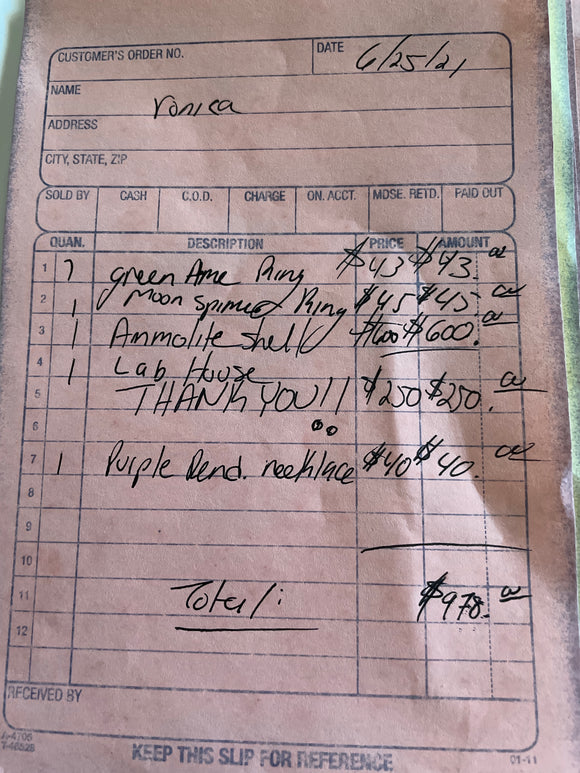 CUSTOMER'S ORDER NO. DATE 6/25/21
NAME Vonica
ADDRESS
CITY, STATE, ZIP
SOLD BY CASH C.O.D. CHARGE ON. ACCT. MDSE. RETD. PAID OUT
QUAN. DESCRIPTION PRICE AMOUNT
1 1 green Ame Ring $43 $43.00
2 1 Moon spinner Ring $45 $45.00
3 1 Ammolite shell $600 $600.00
4 1 Lab House
5 THANK YOU!! $250 $250.00
6
7 1 Purple Dend. necklace $40 $40.00
8
9
10
11 Total: $978.00
12
RECEIVED BY
A-4705
T-46528
KEEP THIS SLIP FOR REFERENCE
01-11